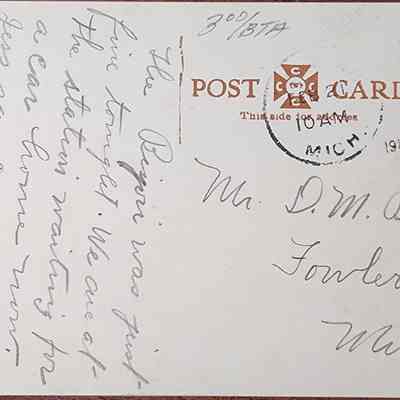 3⁰⁰/BTA
POST CARD
This side for address
21
10 AM
MICH
191
Mr. D. M.
Fowler
Mi
The Bijou was just
fine tonight. We are at
the station waiting for
a car home now.